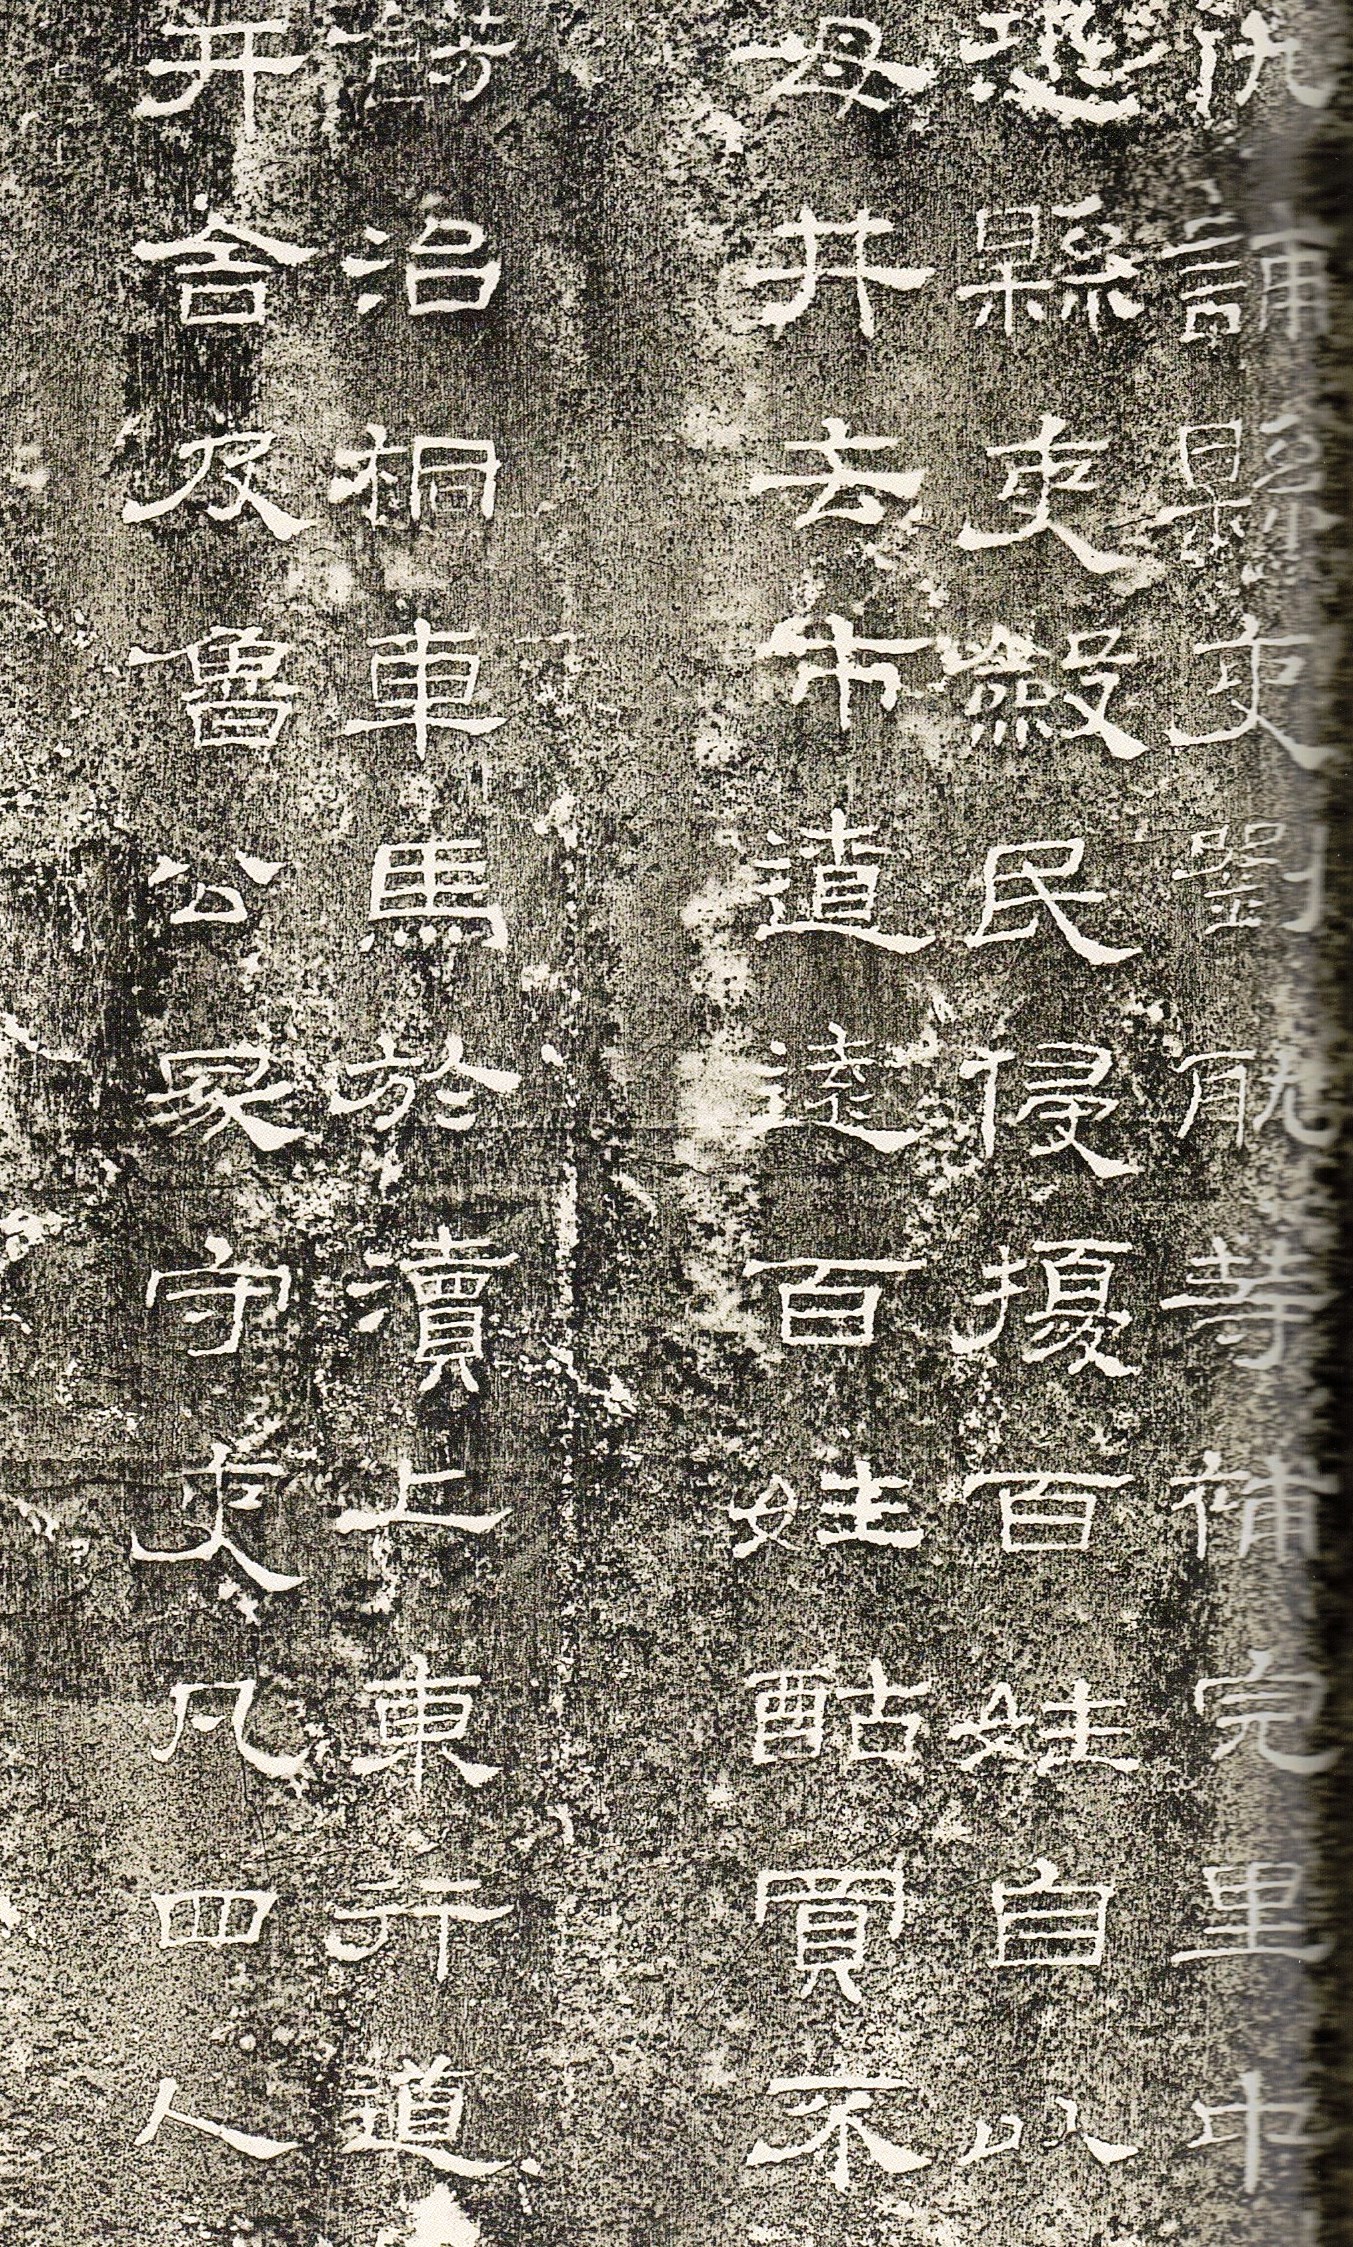 仇誧縣吏劉耽等補完里中
恐縣吏斂民侵擾百姓自以
母井去市遼遠百姓酤買不
餝治桐車馬於瀆上東行道
开舍及魯公冢守吏凡四人